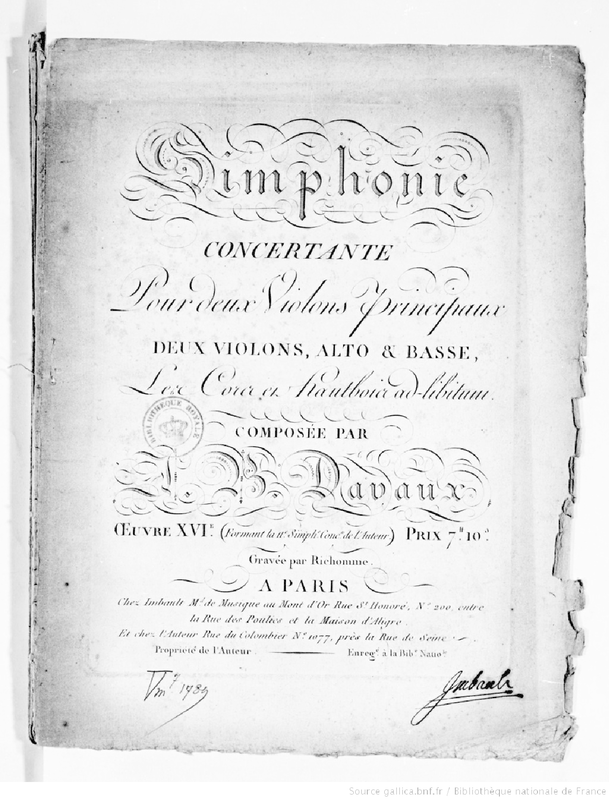 Simphonie
CONCERTANTE
Pour deux Violons Principaux
DEUX VIOLONS, ALTO & BASSE,
Les Cors et hautbois ad-libitum.
BIBLIOTHEQUE ROYALE
COMPOSÉE PAR
J. B. Davaux
ŒUVRE XVI.E (Formant la 11.e Simph.e Conc.e de l'Auteur) PRIX 7.# 10.s
Gravée par Richomme.
A PARIS
Chez Imbault M.d de Musique au Mont d'Or Rue S.t Honoré, N.o 200, entre
la Rue des Poulies et la Maison d'Aligre.
Et chez l'Auteur Rue du Colombier N.o 1077, près la Rue de Seine.
Propriété de l'Auteur. Enreg.é à la Bib.e Natio.le
Vm 7 1789
Imbault
Source gallica.bnf.fr / Bibliothèque nationale de France